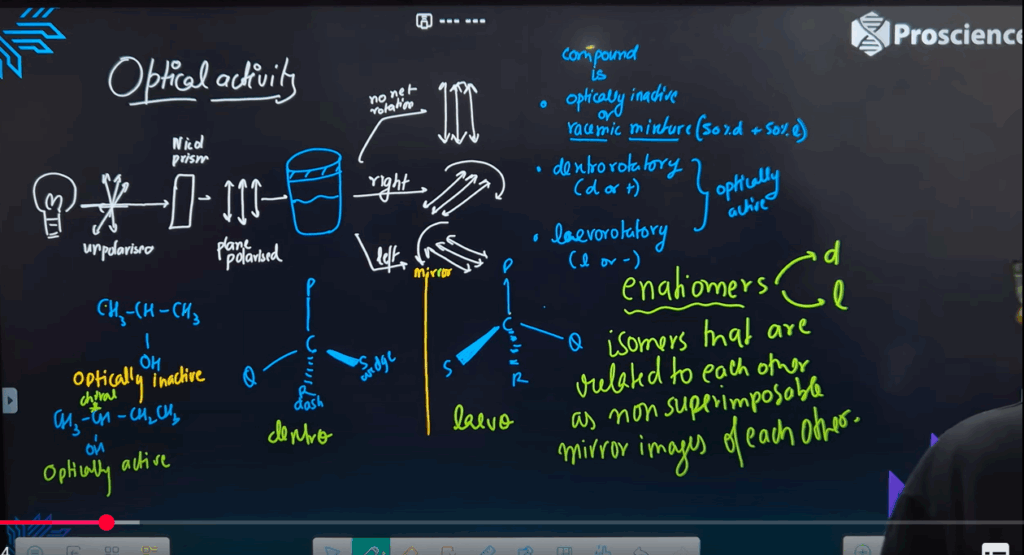 Proscience
Optical activity
Nicol
prism
unpolarised
plane
polarised
no net
rotation
right
left
compound
is
• optically inactive
or
racemic mixture (50% d + 50% l)
• dextrorotatory
(d or +)
• laevorotatory
(l or -)
optically
active
CH3-CH-CH3
OH
Optically inactive
chiral
*
CH3-CH-CH2CH3
OH
Optically active
P
C
Q
S wedge
R
dash
dextro
mirror
P
C
Q
S
R
laevo
enatiomers
d
l
isomers that are
related to each other
as non superimposable
mirror images of each other.
4